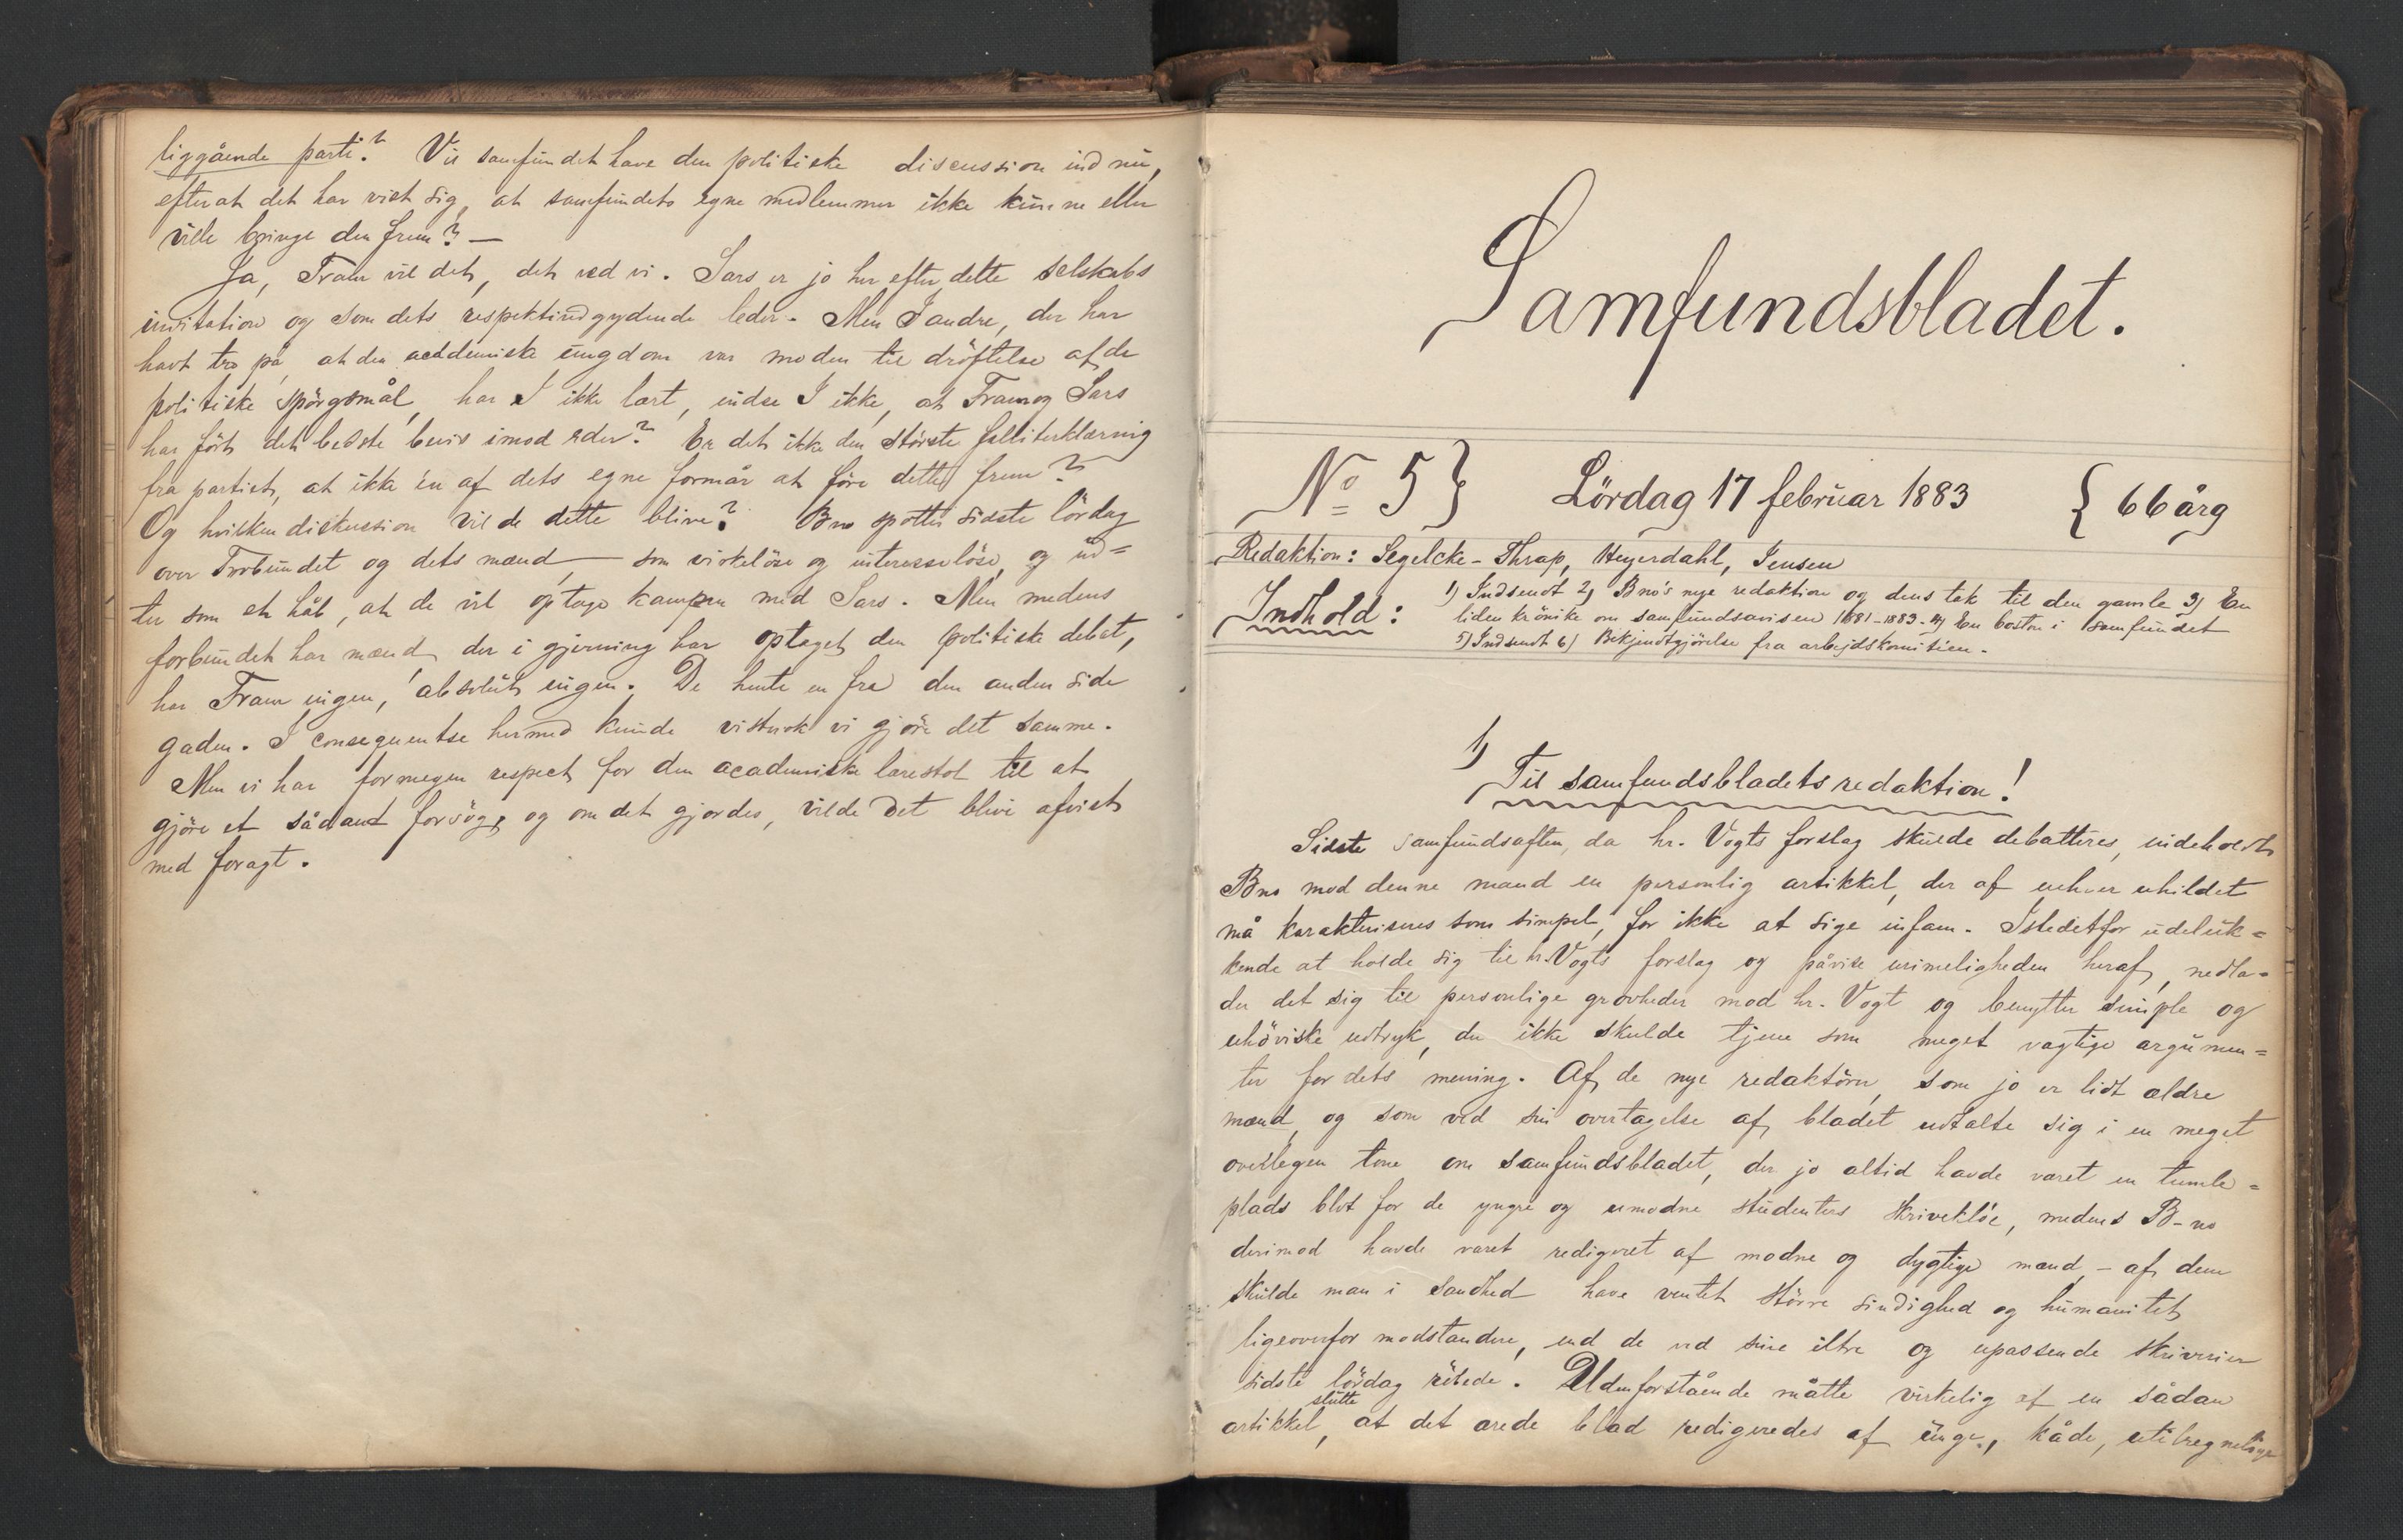 liggående parti? Vil samfundet have den politiske discussion ind nu,
efterat det har vist sig, at samfundets egne medlemmer ikke kunne eller
ville bringe den frem? —
Ja, Fram vil det, det ved vi. Sars er jo her efter dette selskabs
invitation og som dets respektindgydende leder. Men I andre, der har
havt tro på, at den academiske ungdom var moden til dröftelse af de
politiske spörgsmål, har I ikke lært, indse I ikke, at Fram og Sars
har fört det bedste bevis imod eder? Er det ikke den störste falliterklæring
fra partiet, at ikke én af dets egne formår at före dette frem?
Og hvilken diskussion vilde dette blive? Bno spotter sidste lördag
over Forbundet og dets mænd — som virkelöse og interesselöse, og ud=
ter som et håb, at de vil optage kampen med Sars. Men medens
forbundet har mænd, der i gjerning har optaget den politiske debat,
har Fram ingen, absolut ingen. De hente en fra den anden side
gaden. I consequentse hermed kunde vistnok vi gjöre det samme.
Men vi har formegen respect for den academiske lærestol til at
gjöre et sådant forsög, og om det gjordes, vilde det blive afvist
med foragt.
Samfundsbladet.
No 5} Lördag 17 februar 1883 {66 årg
Redaktion: Segelcke-Thrap, Heyerdahl, Jensen
Indhold: 1) Indsendt 2) Bno's nye redaktion og dens tak til den gamle 3) En
liden krönike om samfundsavisen 1881-1883. 4) En boston i samfundet
5) Indsendt 6) Bekjendtgjörelse fra arbejdskomiteen.
1)
Til samfundsbladets redaktion!
Sidste samfundsaften, da hr. Vogts forslag skulde debatteres, indeholdt
Bno mod denne mand en personlig artikkel, der af enhver uhildet
må karakteriseres som simpel, for ikke at sige infam. Istedetfor udeluk=
kende at holde sig til hr. Vogts forslag og påvise urimeligheden heraf, nedla=
der det sig til personlige grovheder mod hr. Vogt og benytter simple og
uhöviske udtryk, der ikke skulde tjene som meget vægtige argumen=
ter for dets mening. Af de nye redaktörer, som jo er lidt ældre
mænd, og som ved sin overtagelse af bladet udtalte sig i en meget
overlegen tone om samfundsbladet, der jo altid havde været en tumle=
plads blot for de yngre og umodne studenters skriveklöe, medens B-no
derimod havde været redigeret af modne og dygtige mænd, - af dem
skulde man i sandhed have ventet större sindighed og humanitet
ligeoverfor modstandere, end de ved sine iltre og upassende skriverier
sidste lördag röbede. Udenforstående måtte virkelig af en sådan
artikkel slutte, at det ærede blad redigeredes af unge, kåde, utilregnelige